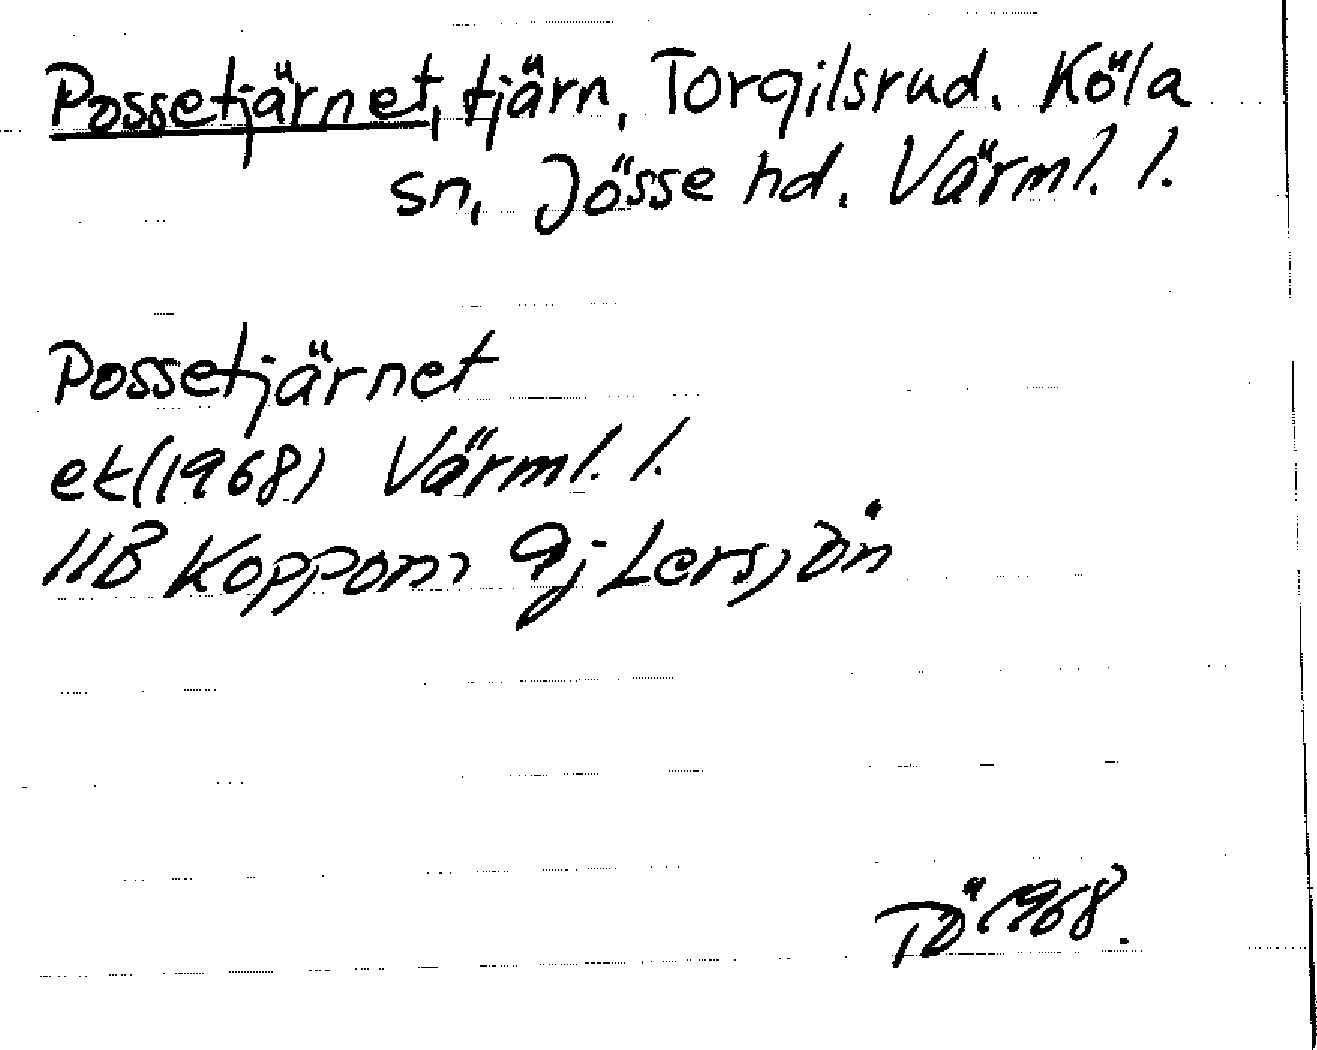 Possetjärnet, tjärn, Torgilsrud. Köla
sn, Jösse hd. Värml. l.
Possetjärnet
ek (1968) Värml. l.
11B Koppom 9j Lersjön
TÖ 1968.